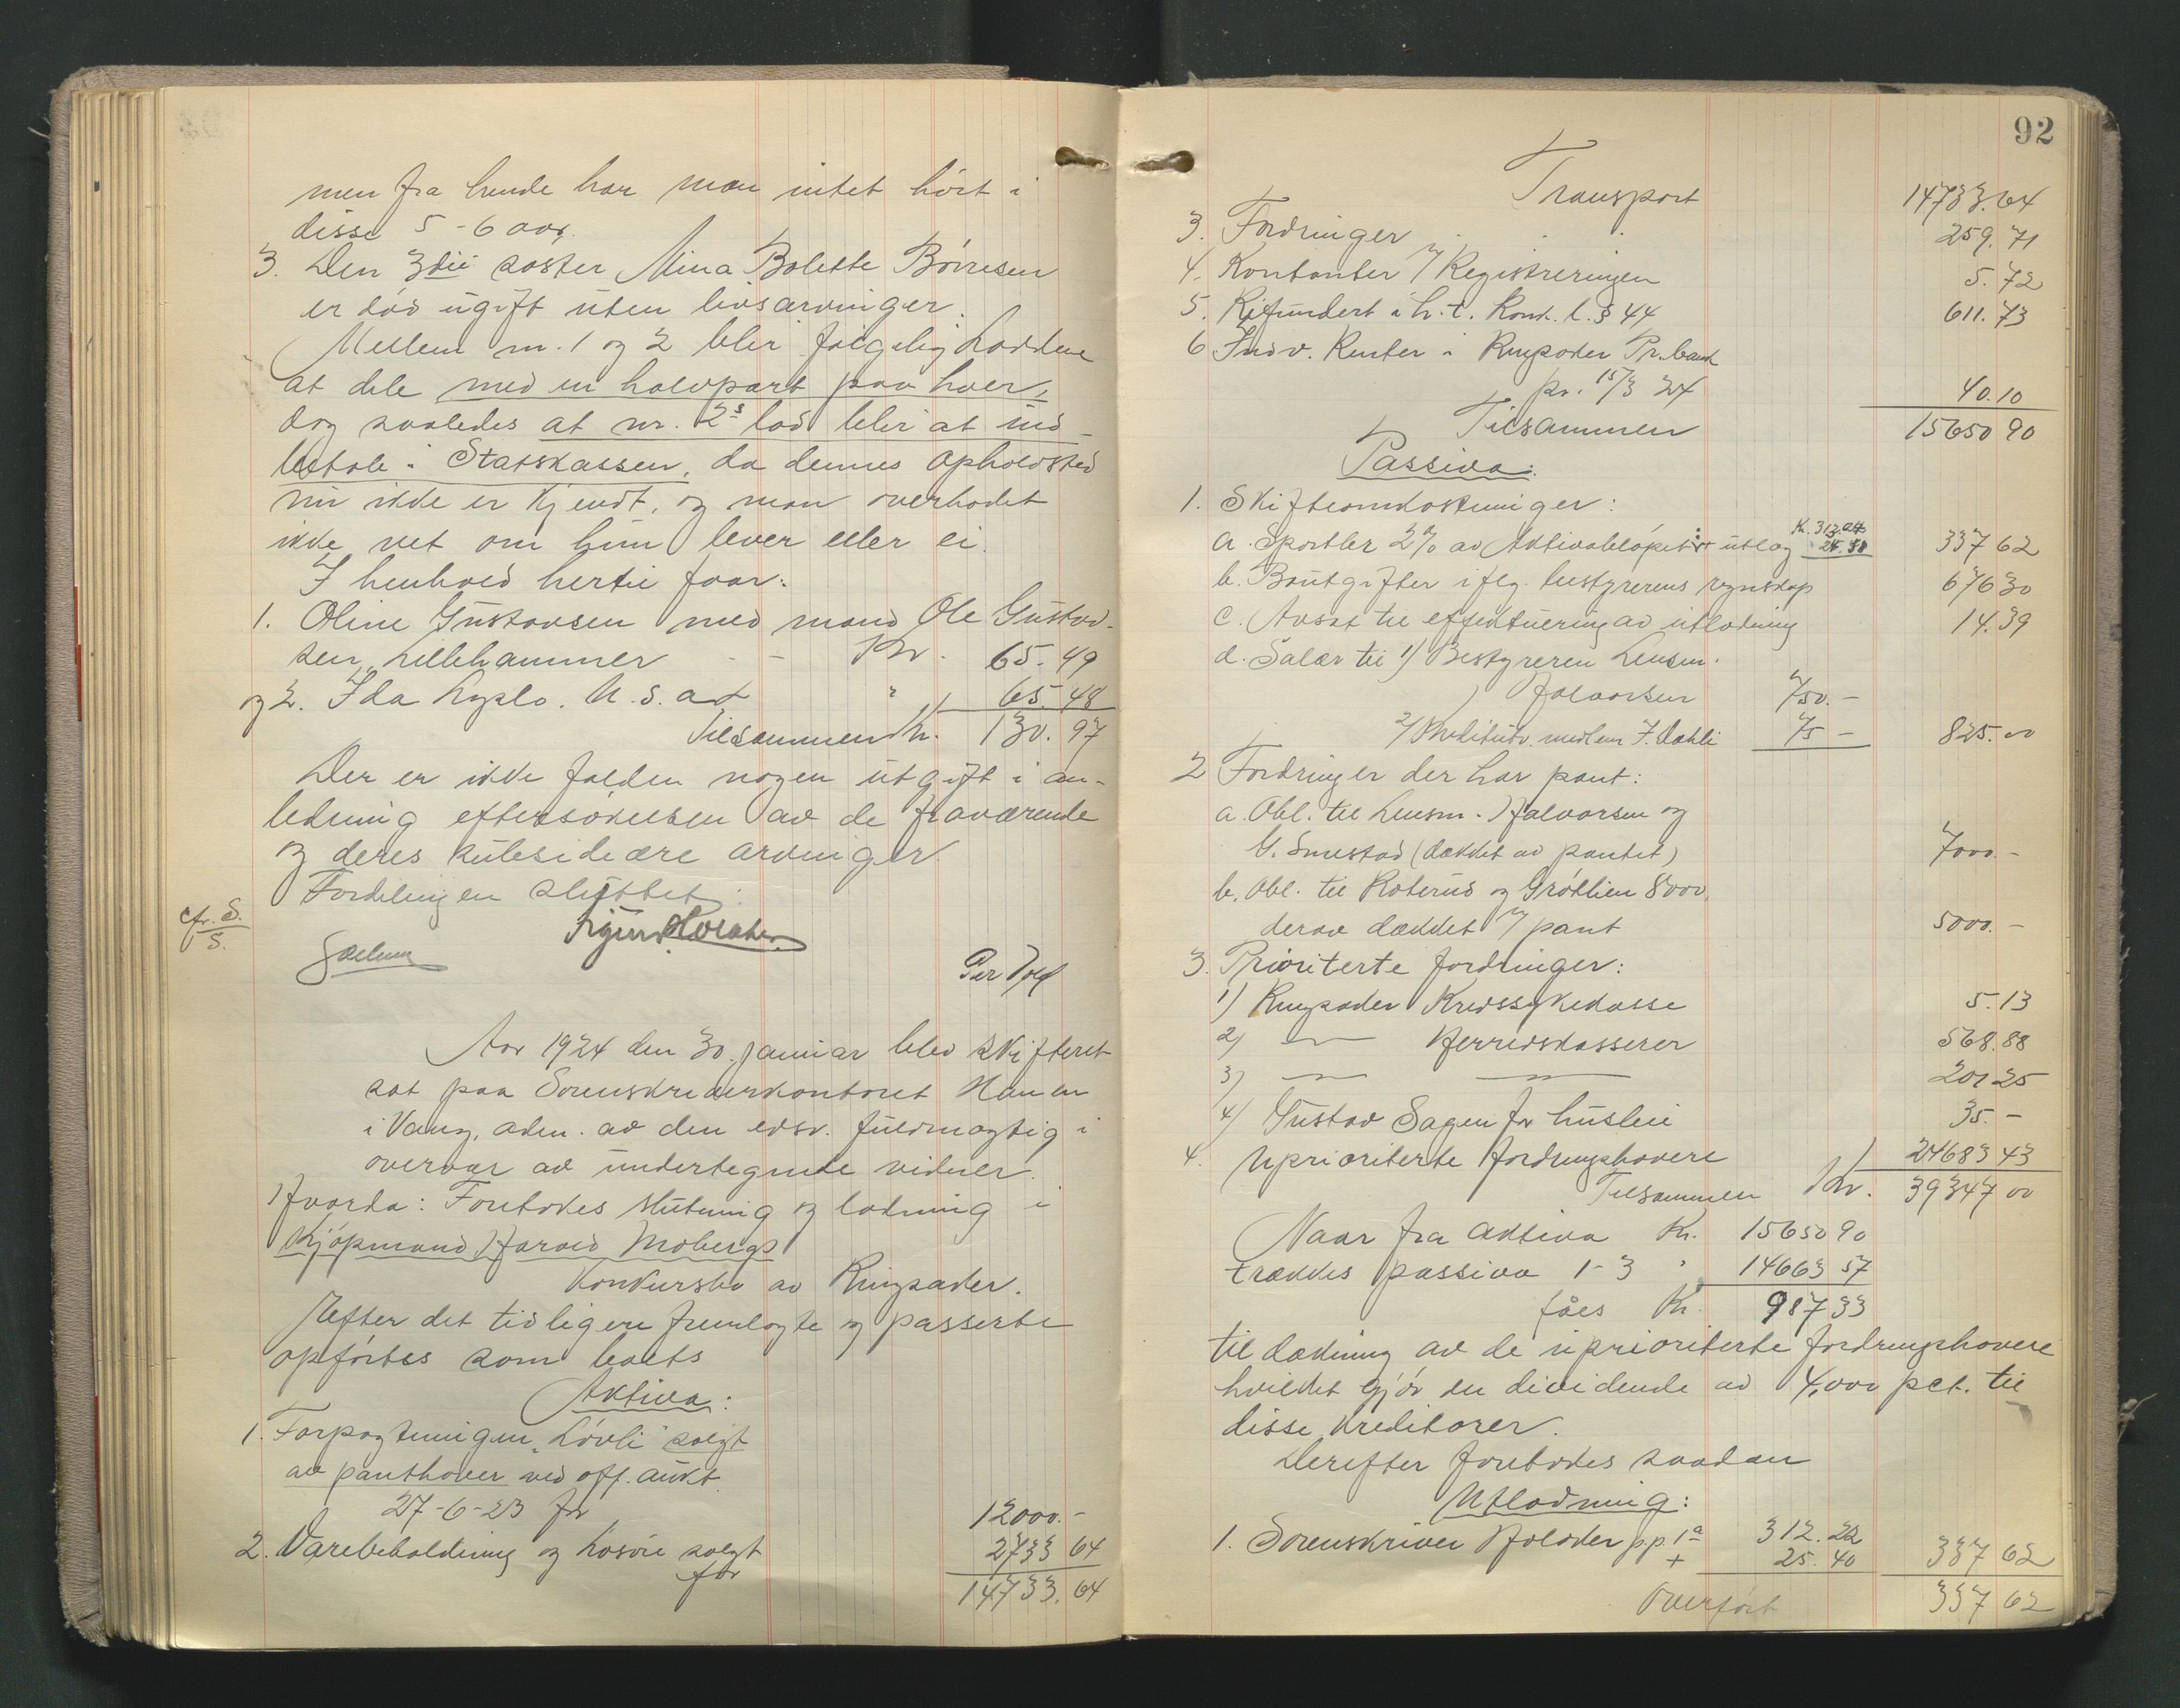 men fra hende har man intet hört i
disse 5-6 aar.
3. Den 3die söster Mina Bolette Börresen
er död ugift uten livsarvinger.
Mellem nr. 1 og 2 blir fölgelig lodden
at dele med en halvpart paa hver,
dog saaledes at nr. 2s lod blir at ind-
betale i Statskassen, da dennes opholdsted
nu ikke er kjendt, og man overhodet
ikke vet om hun lever eller ei.
I henhold hertil faar:
1. Oline Gustavsen med mand Ole Gustav-
sen, Lillehammer - - Kr. 65.49
og 2. Ida Lyslo. U.S.a. " 65.48
Tilsammen Kr. 130.97
Der er ikke falden nogen utgift i an-
ledning eftersökelsen av de fraværende
og deres kulesideære arvinger
Fordelingen sluttet:
cfr. S.
S.
Aar 1924 den 30. januar blev skifteret
sat paa Sorenskriverkontoret
i Vang, adm. av den edsv. fuldmægtig i
overvær av undertegnede vidner.
Hvorda: Foretokes slutning og lodning i
Kjöpmand Harald Mobergs
Konkursbo av Ringsaker.
Efter det tidligere fremlagte og passerte
opförtes som boets
Aktiva:
1. Forpagtningen "Lövli" solgt
av panthaver ved off. aukt.
27-6-23 for 12000.-
2. Varebeholdning og lösöre solgt
for 2733 64
14733.64
92
Transport 14733.64
3. Fordringer . . . 259.71
4. Kontanter v/ Registreringen 5.72
5. Refundert i h.t. Konk. l. § 44 611.73
6 Indv. Renter i Ringsaker Pr.bank
pr. 15/3 24 40.10
Tilsammen 15650 90
Passiva:
1. Skifteomkostninger:
a. Sportler 2% av Aktivabelöpet + utlæg 337 62
b. Boutgifter iflg. bestyrerens regnskap 676 30
c. Avsat til effektuering av utlodning 14.39
d. Salær til 1) Bestyreren Lensm.
Halvorsen 750.-
2/ Kreditudv. medlem J. Dahli 75 - 825.00
2 Fordringer der har pant:
a. Obl. til Lensm. Halvorsen og
G. Smestad (dækket av pantet) 7000.-
b. Obl. til Koterud og Gröttlien 8000,
derav dækket v/ pant 5000.-
3. Prioriterte fordringer:
1) Ringsaker Kredssykekasse 5.13
2) — Herredskasserer 568.88
3) — — 201 25
4) Gustav Sagen for husleie 35.-
4. Uprioriterte fordringshavere 24683 43
Tilsammen Kr. 39347 00
Naar fra aktiva Kr. 15650 90
trækkes passiva 1-3 " 14663 57
fåes Kr. 987 33
til dækning av de uprioriterte fordringshavere
hvilket gjör en dividende av 4,000 pct. til
disse kreditorer.
Derefter foretokes saadan
Utlodning:
1. Sorenskriver Hfolder p.p. 1a 312.22
+ 25.40 337 62
Overfört 337 62